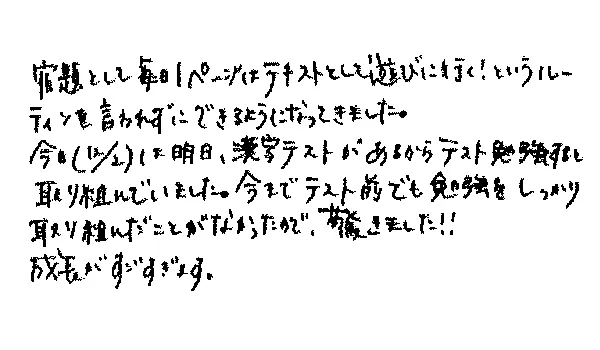 宿題として毎日1ページはテキストとして遊びに行く!というルー
ティンを言われずにできるようになってきました。
今日(12/2)は明日、漢字テストがあるからテスト勉強すると
取り組んでいました。今までテスト前でも勉強をしっかり
取り組んだことがなかったので、驚きました!!
成長がすごすぎます。